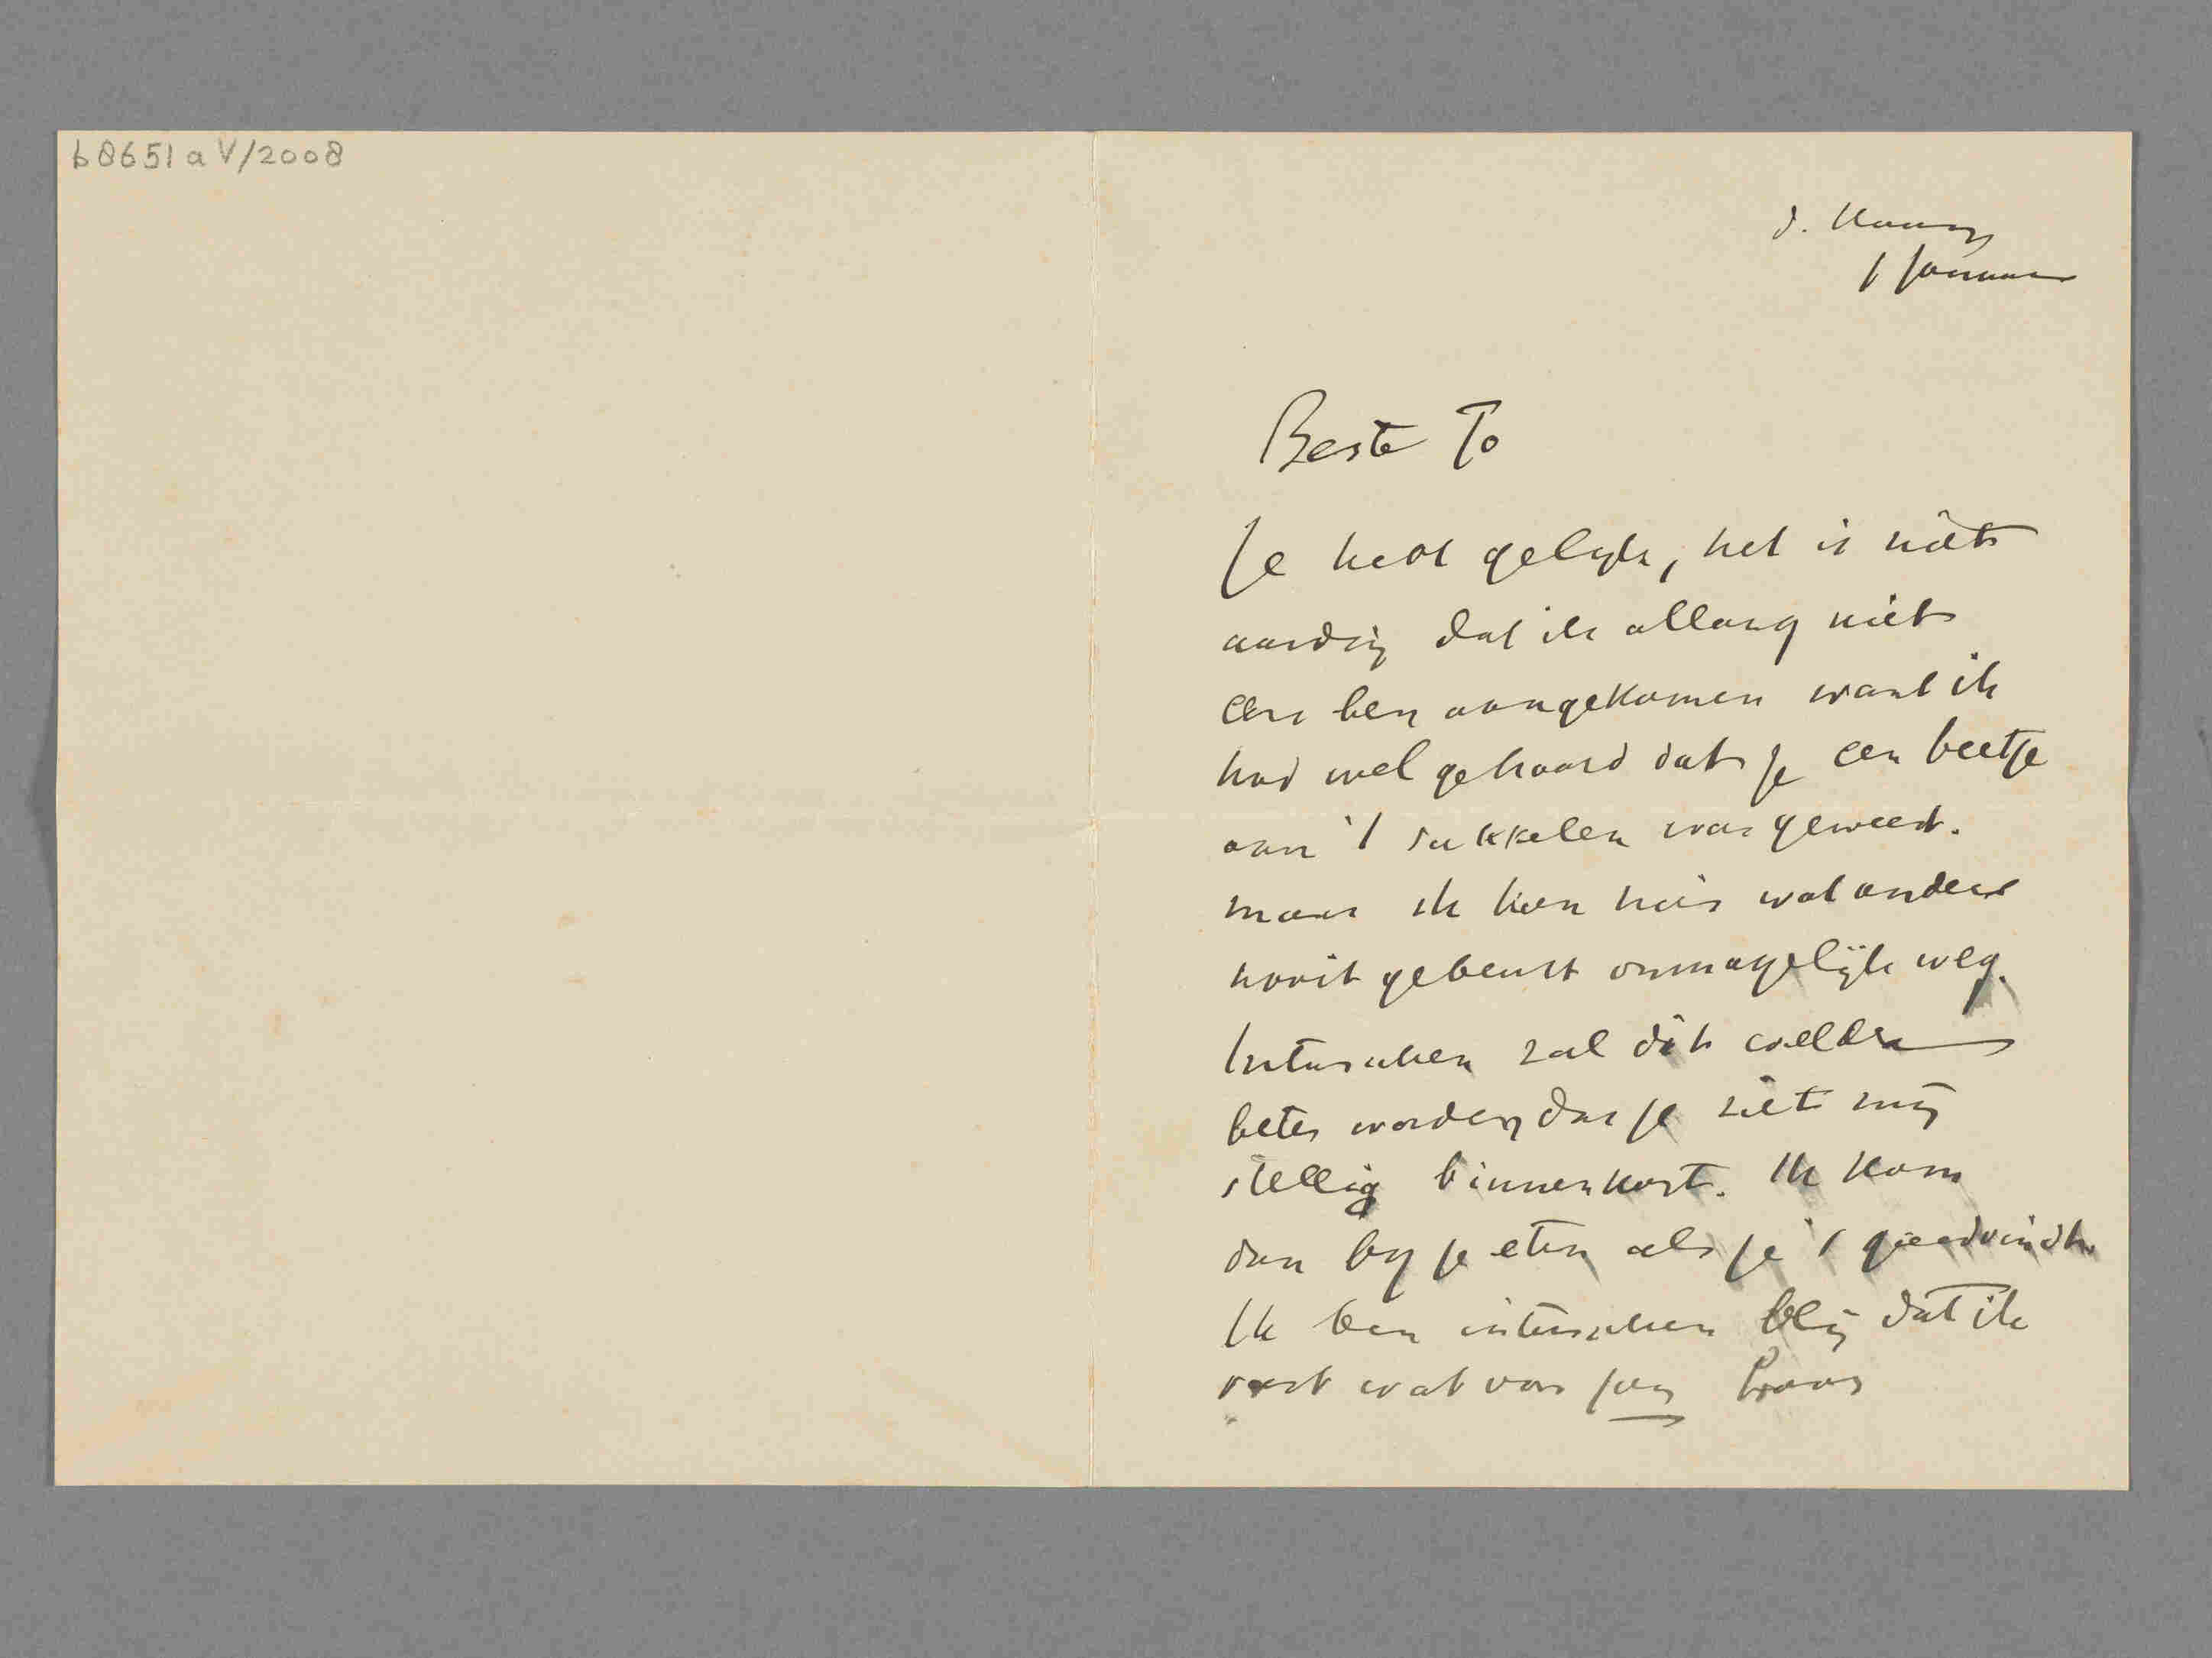 b8651 a V/2008
d. Haag
1 Januari
Beste To
Je hebt gelijk, het is niet
aardig dat ik allang niet
eens ben aangekomen want ik
had wel gehoord dat je een beetje
aan 't sukkelen was geweest.
maar ik kon hier wat anders
nooit gebeurt onmogelijk weg.
Intusschen zal dit
beter worden dus je ziet mij
stellig binnenkort. Ik kom
dan bij je eten als je 't goedvindt.
Ik ben intusschen blij dat ik
vast wat van jou